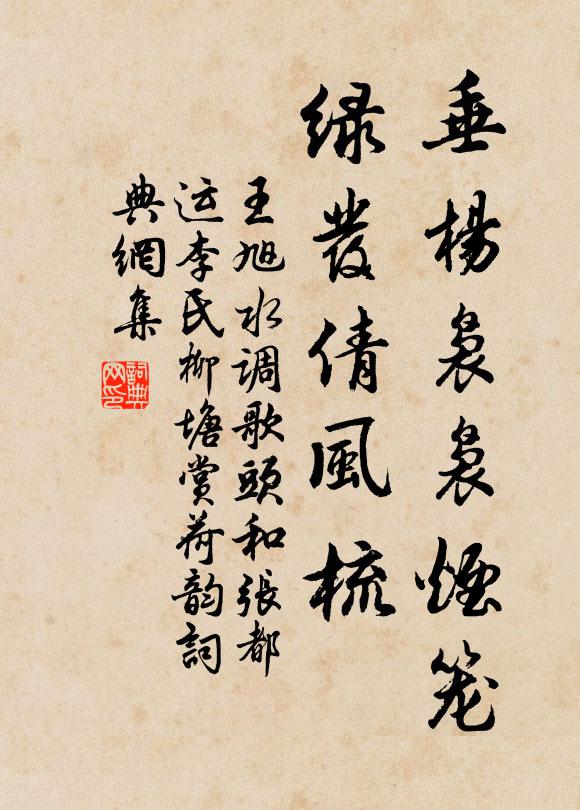 垂楊裊裊煙笼
绿發倩風梳
王旭水调歌頭和張都
运李氏柳塘賞荷韵詞
典網集
詞典网印